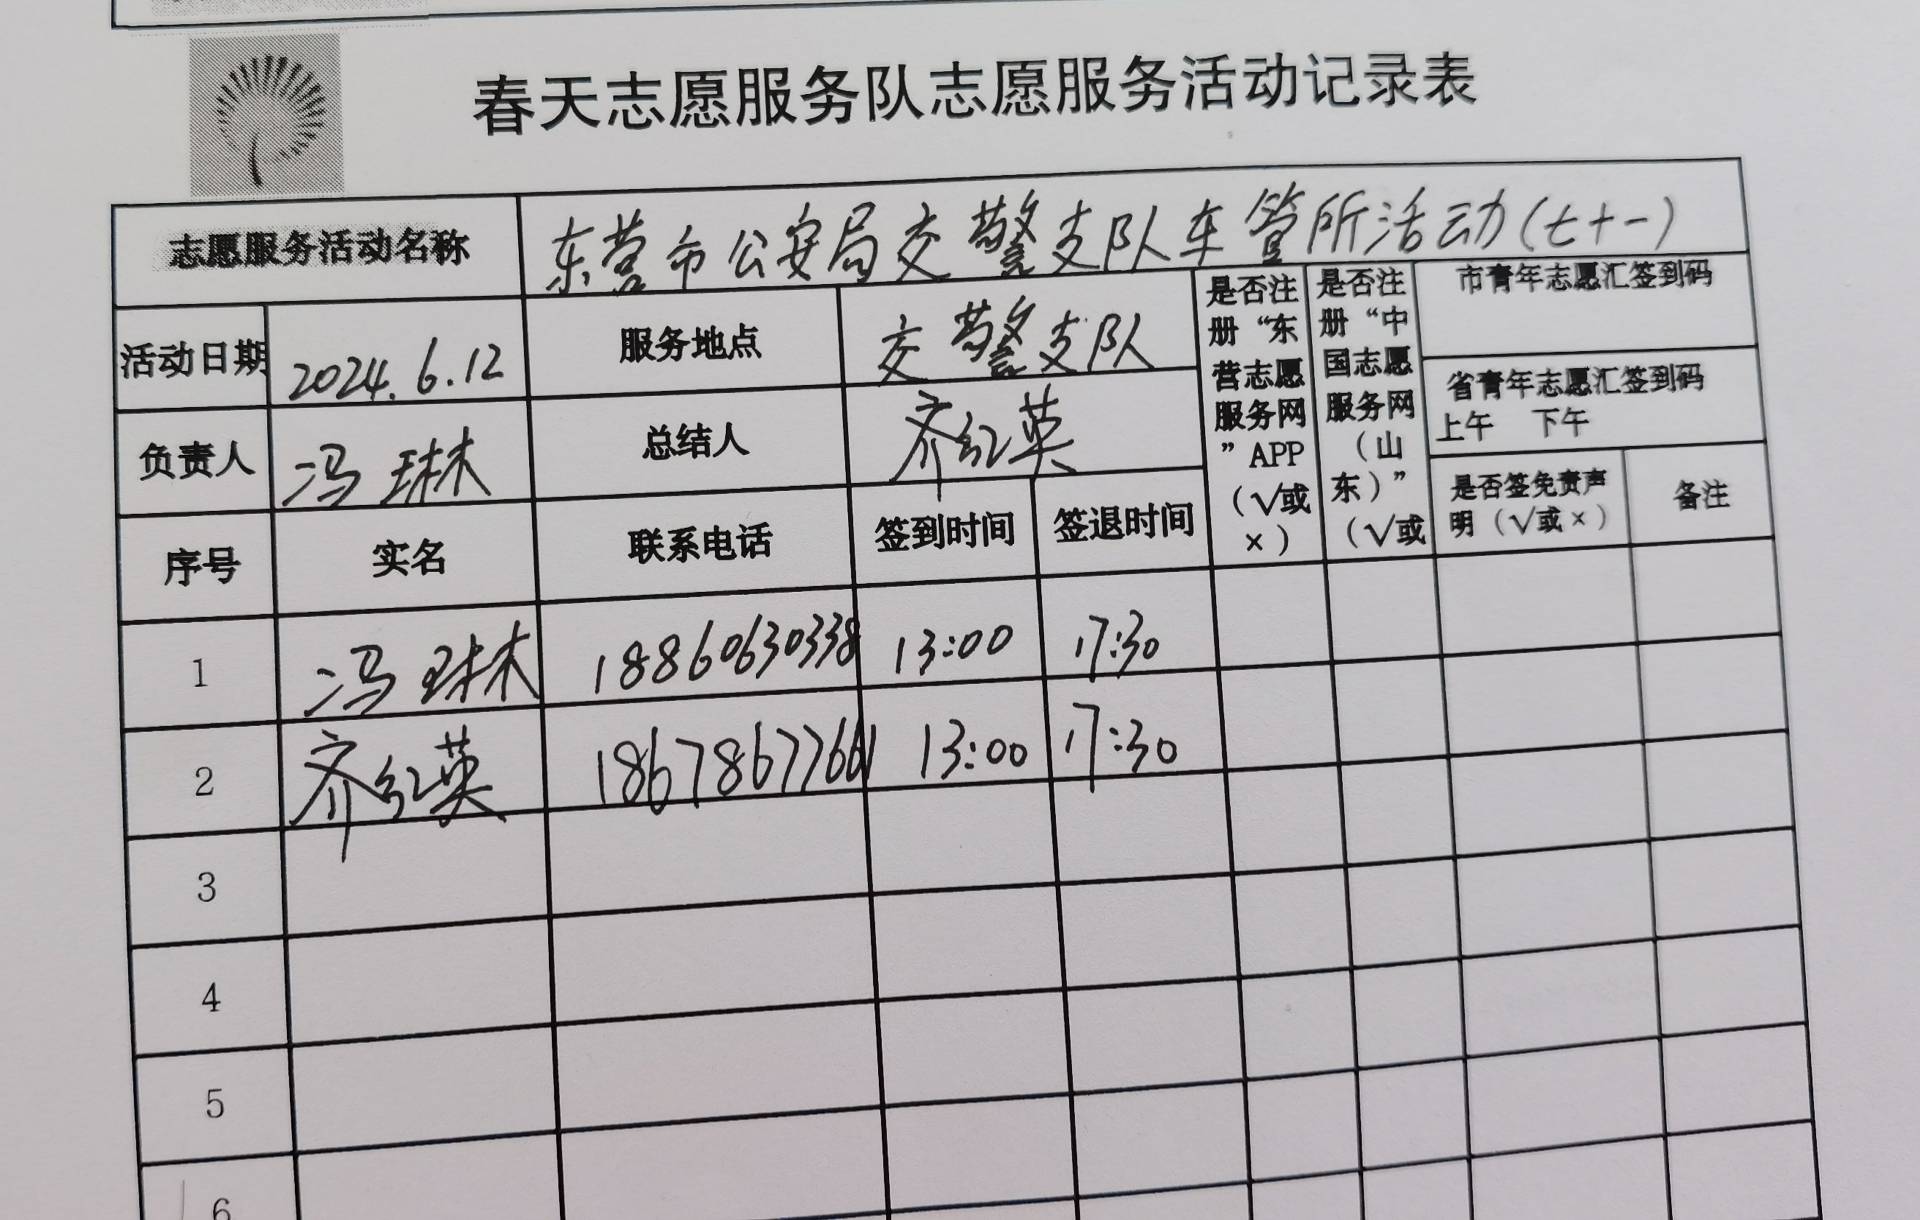 春天志愿服务队志愿服务活动记录表
志愿服务活动名称 东营市公安局交警支队车管所活动(七十一)
活动日期 2024.6.12 服务地点 交警支队
负责人 冯琳 总结人 齐红英
是否注册“东营志愿服务网”APP（√或×）
是否注册“中国志愿服务网（山东）”（√或
市青年志愿汇签到码
省青年志愿汇签到码
上午 下午
序号 实名 联系电话 签到时间 签退时间 是否签免责声明（√或×） 备注
1 冯琳 18860630338 13:00 17:30
2 齐红英 18678677661 13:00 17:30
3
4
5
6